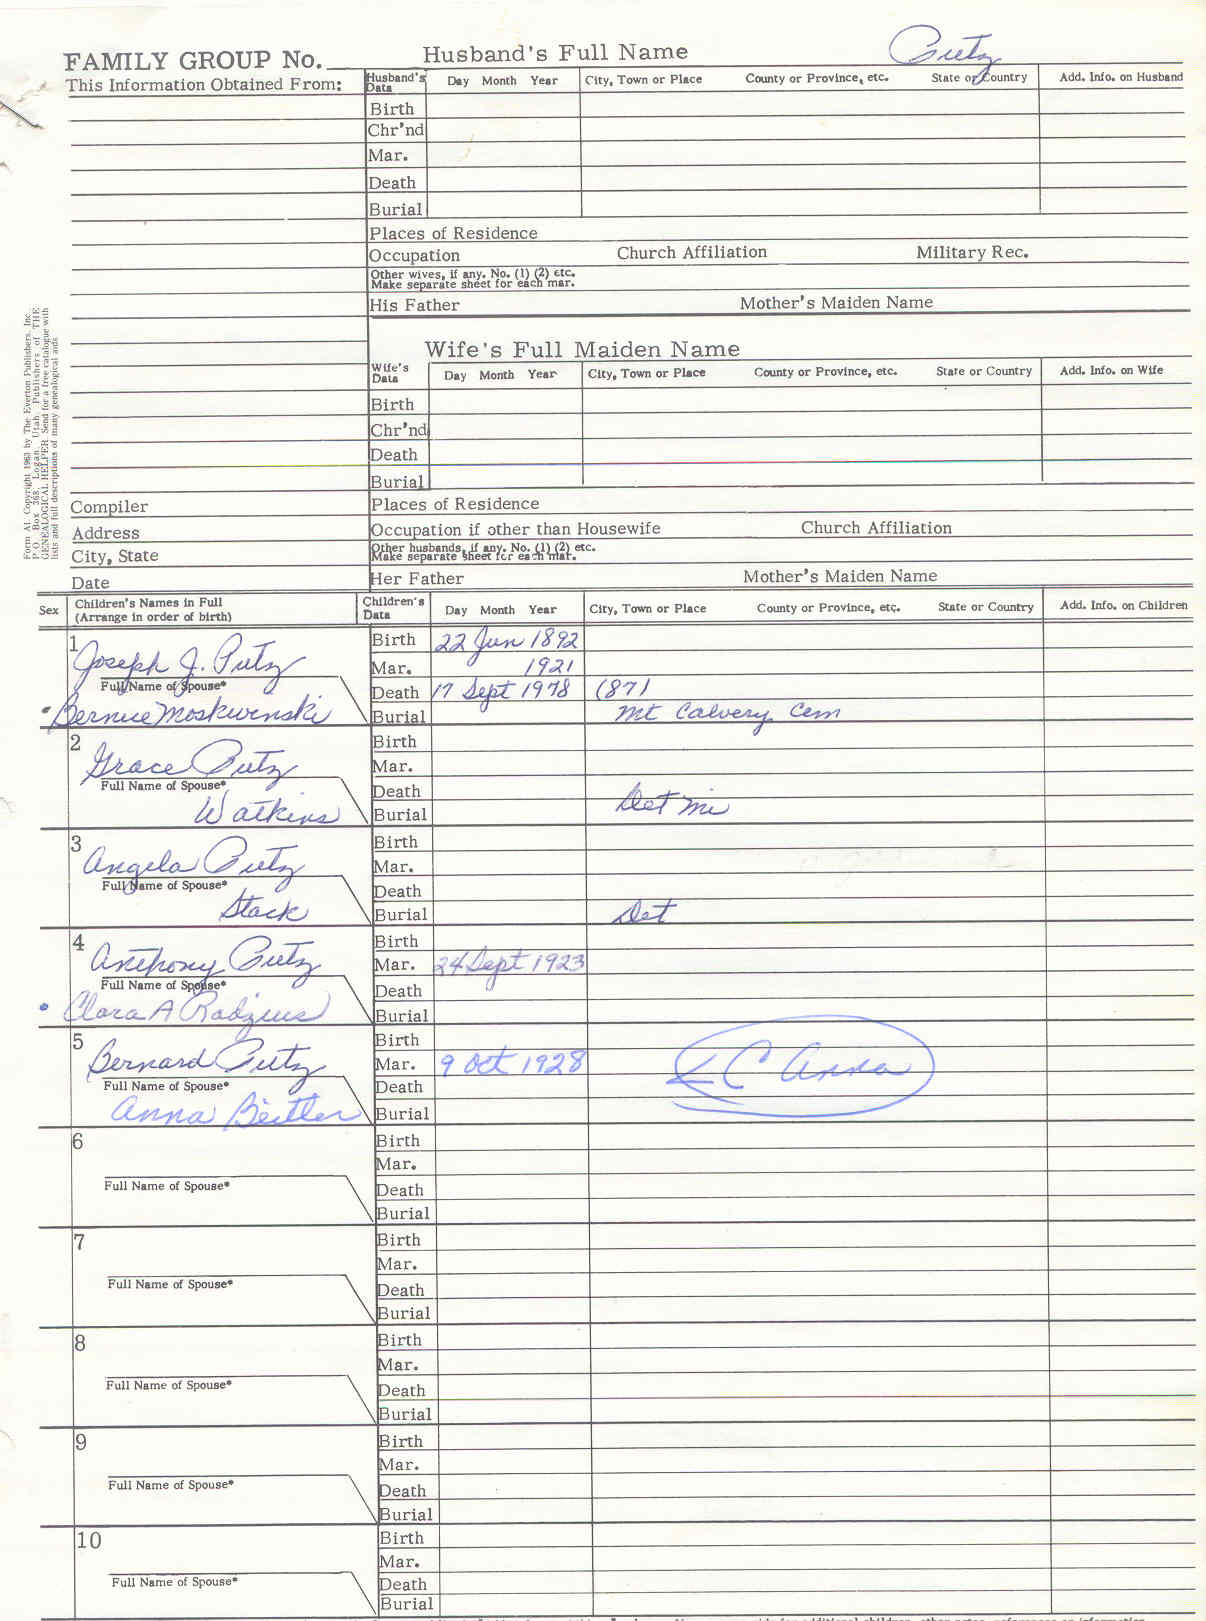 FAMILY GROUP No. Husband's Full Name Putz
This Information Obtained From:
Husband's Data Day Month Year City, Town or Place County or Province, etc. State or Country Add. Info. on Husband
Birth
Chr'nd
Mar.
Death
Burial
Places of Residence
Occupation Church Affiliation Military Rec.
Other wives, if any. No. (1) (2) etc.
Make separate sheet for each mar.
His Father Mother's Maiden Name
Form A1. Copyright 1963 by The Everton Publishers, Inc.
P.O. Box 368, Logan, Utah, Publishers of THE
GENEALOGICAL HELPER. Send for a free catalogue with
lists and full descriptions of many genealogical aids
Wife's Full Maiden Name
Wife's Data Day Month Year City, Town or Place County or Province, etc. State or Country Add. Info. on Wife
Birth
Chr'nd
Death
Burial
Compiler Places of Residence
Address Occupation if other than Housewife Church Affiliation
City, State Other husbands, if any. No. (1) (2) etc.
Make separate sheet for each mar.
Date Her Father Mother's Maiden Name
Sex Children's Names in Full Children's Data Day Month Year City, Town or Place County or Province, etc. State or Country Add. Info. on Children
(Arrange in order of birth)
1 Birth 22 Jun 1892
Joseph J. Putz Mar. 1921
Full Name of Spouse* Death 17 Sept 1978 (87)
Bernice Moskwenski Burial Mt Calvery Cem
2 Birth
Grace Putz Mar.
Full Name of Spouse* Death
Watkins Burial Det Mi
3 Birth
Angela Putz Mar.
Full Name of Spouse* Death
Stack Burial Det
4 Birth
Anthony Putz Mar. 24 Sept 1923
Full Name of Spouse* Death
Clara A Radzius Burial
5 Birth
Bernard Putz Mar. 9 Oct 1928 C Anna
Full Name of Spouse* Death
Anna Beitler Burial
6 Birth
Mar.
Full Name of Spouse* Death
Burial
7 Birth
Mar.
Full Name of Spouse* Death
Burial
8 Birth
Mar.
Full Name of Spouse* Death
Burial
9 Birth
Mar.
Full Name of Spouse* Death
Burial
10 Birth
Mar.
Full Name of Spouse* Death
Burial